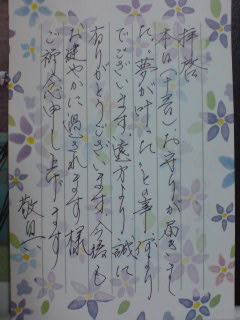 拝啓
本日(十一日)、お守りが届きまし
た。夢が叶った、との事、何より
でございます。遠方より誠に
有りがとうございます。今後も
お健やかに過ごされます様
ご祈念申し上げます
敬具